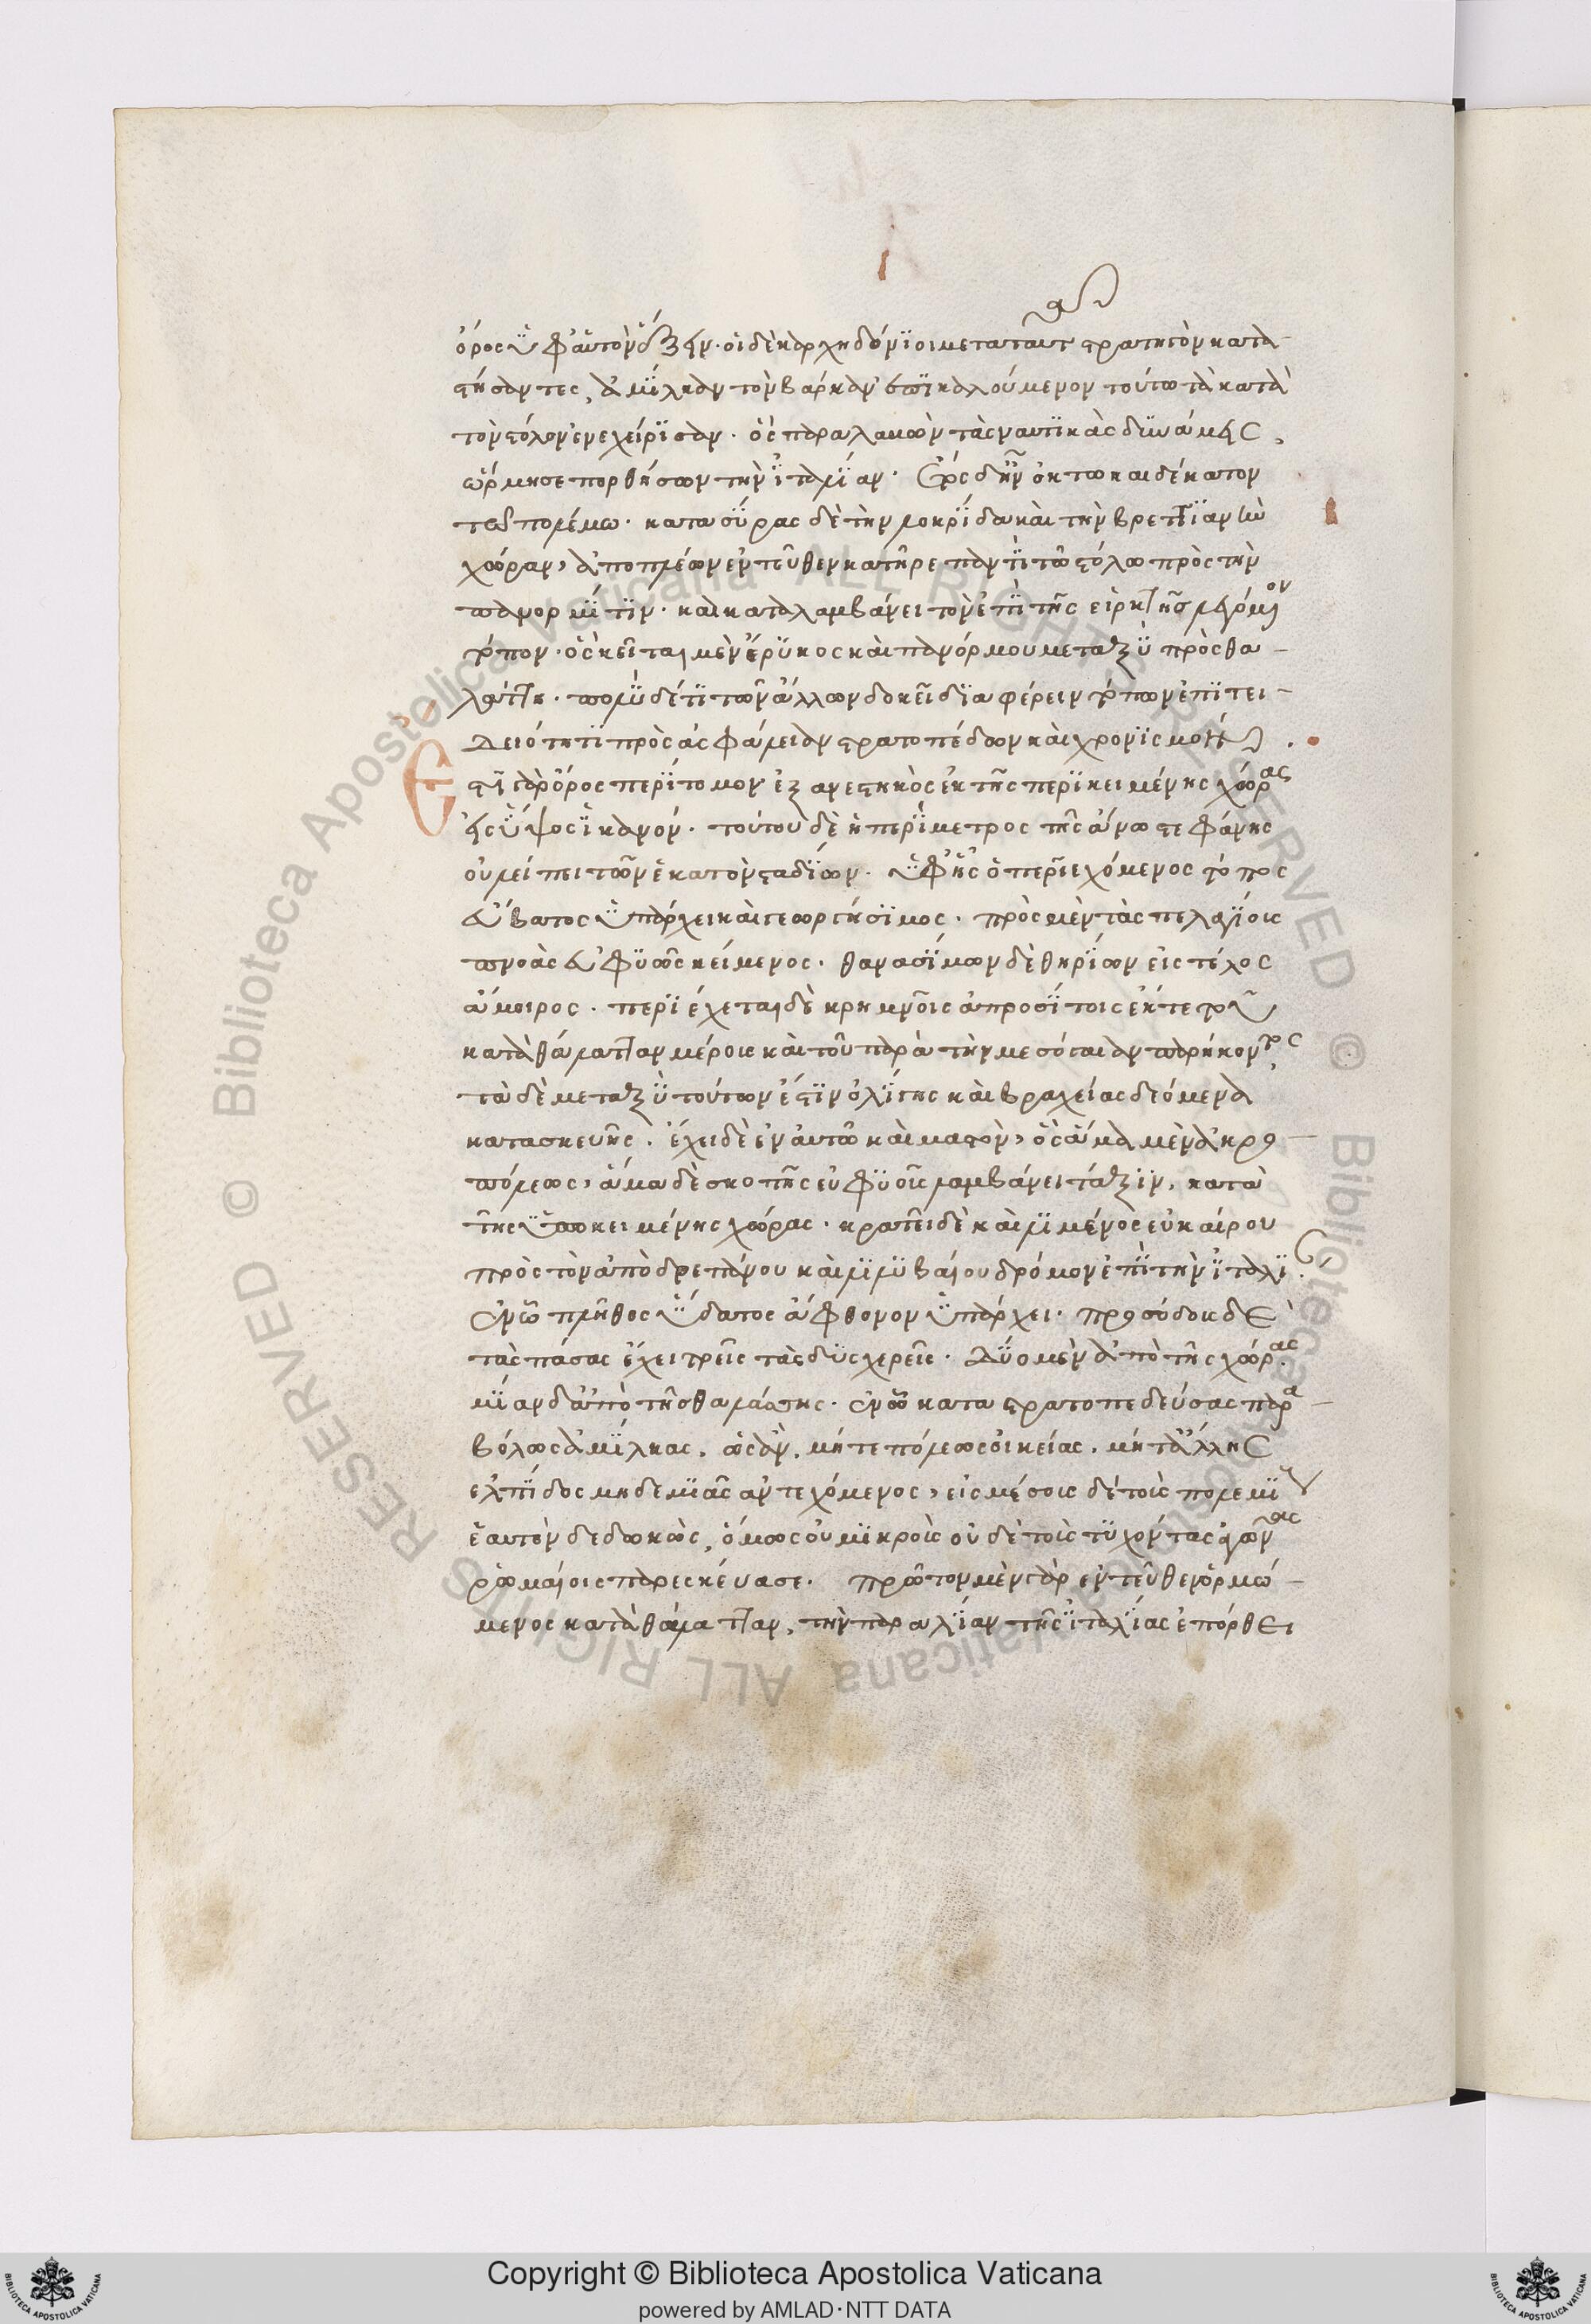 ὄρος ὑφ' αὑτὸν ἕξειν. οἱ δὲ καρχηδόνϊοι μετὰ ταῦτα στρατηγὸν κατα-
στήσαντες, ἀμΐλκαν τὸν βάρκαν ἐπικαλούμενον τούτω τὰ κατὰ
τὸν στόλον ἐνεχείρϊσαν. ὃς παραλαβὼν τὰς ναυτϊκὰς δυνάμεις,
ὥρμησε πορθήσων τὴν ἰταλΐαν. ἔτος δ' ἦν ὀκτωκαιδέκατον
τῶ πολέμω. κατασύρας δὲ τὴν λοκρΐδα καὶ τὴν βρεττΐαν
χώραν, ἀποπλέων ἐντεῦθεν κατῆρε παντὶ τῶ στόλω πρὸς τὴν
πανορμῖτϊν. καὶ καταλαμβάνει τὸν ἐπὶ τῆς εἱρκτῆς λεγόμενον
τόπον. ὃς κεῖται μὲν ἔρϋκος καὶ πανόρμου μεταξὺ πρὸς θα-
λάττη. πολὺ δέ τι τῶν ἄλλων δοκεῖ δϊαφέρειν τόπων ἐπϊτει-
δειότητϊ πρὸς ἀσφάλειαν στρατοπέδων καὶ χρονϊσμὸν.
Ἔστι γὰρ ὄρος περΐτομον ἐξανεστηκὸς ἐκ τῆς περϊκειμένης χώρας
εἰς ὕψος ἱκανόν. τούτου δὲ ἡ περΐμετρος τῆς ἄνω στεφάνης
οὐ λείπει τῶν ἑκατὸν σταδΐων. ὑφ' ἧς ὁ περϊεχόμενος τόπος
εὔβατος ὑπάρχει καὶ γεωργήσϊμος. πρὸς μὲν τὰς πελαγΐοις
πνοὰς εὐφϋῶς κείμενος. θανασΐμων δὲ θηρΐων εἰς τέλος
ἄμοιρος. περϊέχεται δὲ κρημνοῖς ἀπροσΐτοις ἔκ τε τοῦ
κατὰ θάλατταν μέροις καὶ τοῦ παρὰ τὴν μεσόγαιαν παρήκοντος,
τὰ δὲ μεταξὺ τούτων ἐστϊν ὀλΐγης καὶ βραχείας δεόμενα
κατασκευῆς. ἔχει δὲ ἐν αὑτῶ καὶ μαστὸν, ὃς ἅμα μὲν ἀκρο-
πόλεως, ἅμα δὲ σκοπῆς εὐφϋοῖς λαμβάνει τάξϊν, κατὰ
τῆς ὑποκειμένης χώρας. κρατεῖ δὲ καὶ λϊμένος εὐκαίρου
πρὸς τὸν ἀπὸ δρεπάνου καὶ λϊλϋβαίου δρόμον ἐπὶ τὴν ἰταλΐαν.
ἐν ὧ πλῆθος ὕδατος ἄφθονον ὑπάρχει. προσόδοις δὲ
τὰς πάσας ἔχει τρεῖς τὰς δυσχερεῖς. δύο μὲν ἀπὸ τῆς χώρας.
μΐαν δ' ἀπὸ τῆς θαλάσσης. ἐν ὧ καταστρατοπεδεύσας παρα-
βόλως ἀμΐλκας, ὡς ἂν, μήτε πόλεως οἰκείας, μήτ' ἄλλης
ἐλπΐδος μηδεμϊᾶς ἀντεχόμενος, εἰς μέσοις δὲ τοῖς πολεμΐοις
ἑαυτὸν δεδωκὼς, ὅμως οὐ μϊκροὶς οὐδὲ τοὶς τϋχόντας ἀγῶνας
ῥωμαίοις παρεσκεύασε. πρῶτον μὲν γὰρ ἐντεῦθεν ὁρμώ-
μενος κατὰ θάλατταν, τὴν παραλΐαν τῆς ἰταλΐας ἐπόρθει
Copyright © Biblioteca Apostolica Vaticana
powered by AMLAD·NTT DATA